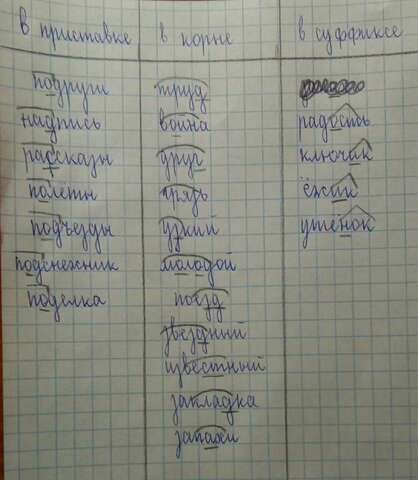 в приставке в корне в суффиксе
подруги труд
надпись война радость
рассказы друг ключик
полеты грязь ёжик
подъезды узкий утенок
подснежник молодой
поделка поезд
звездный
известный
закладка
запахи